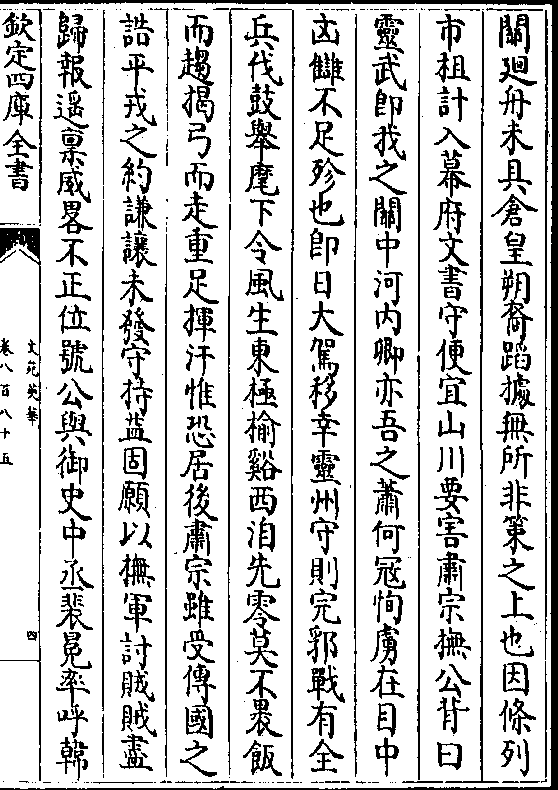 關廻舟未具倉皇朔裔蹈據無所非策之上也因條列
市租計入幕府文書守便宜山川要害肅宗撫公背曰
靈武即我之關中河内卿亦吾之蕭何冦恂虜在目中
凶讎不足殄也即日大駕移幸靈州守則完郛戰有全
兵伐鼓舉麾下令風生東極榆谿西洎先零莫不裹飯
而趨揭弓而走重足揮汗惟恐居後肅宗雖受傳國之
誥平戎之約謙讓未發守持益固願以撫軍討賊賊盡
歸報遥稟威畧不正位號公與御史中丞裴冕率呼韓
欽定四庫全書
文苑英華
卷八百八十五
四